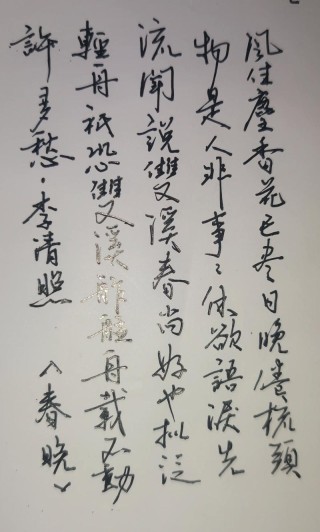 風住塵香花已尽日晚倦梳頭
物是人非事〻休欲語淚先
流聞說雙溪春尚好也拟泛
輕舟祇恐雙溪舴艋舟載不動
許多愁·李清照〈春晚〉